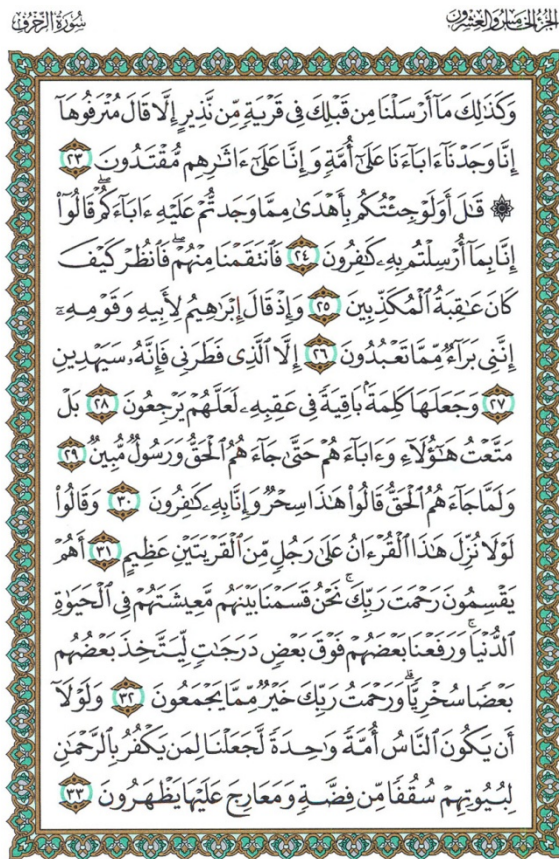 الجزء الخامس والعشرون
سورة الزخرف
وَكَذَٰلِكَ مَآ أَرۡسَلۡنَا مِن قَبۡلِكَ فِي قَرۡيَةٖ مِّن نَّذِيرٍ إِلَّا قَالَ مُتۡرَفُوهَآ
إِنَّا وَجَدۡنَآ ءَابَآءَنَا عَلَىٰٓ أُمَّةٖ وَإِنَّا عَلَىٰٓ ءَاثَٰرِهِم مُّقۡتَدُونَ ٢٣
۞ قَٰلَ أَوَلَوۡ جِئۡتُكُم بِأَهۡدَىٰ مِمَّا وَجَدتُّمۡ عَلَيۡهِ ءَابَآءَكُمۡۖ قَالُوٓاْ
إِنَّا بِمَآ أُرۡسِلۡتُم بِهِۦ كَٰفِرُونَ ٢٤ فَٱنتَقَمۡنَا مِنۡهُمۡۖ فَٱنظُرۡ كَيۡفَ
كَانَ عَٰقِبَةُ ٱلۡمُكَذِّبِينَ ٢٥ وَإِذۡ قَالَ إِبۡرَٰهِيمُ لِأَبِيهِ وَقَوۡمِهِۦٓ
إِنَّنِي بَرَآءٞ مِّمَّا تَعۡبُدُونَ ٢٦ إِلَّا ٱلَّذِي فَطَرَنِي فَإِنَّهُۥ سَيَهۡدِينِ
٢٧ وَجَعَلَهَا كَلِمَةَۢ بَاقِيَةٗ فِي عَقِبِهِۦ لَعَلَّهُمۡ يَرۡجِعُونَ ٢٨ بَلۡ
مَتَّعۡتُ هَٰٓؤُلَآءِ وَءَابَآءَهُمۡ حَتَّىٰ جَآءَهُمُ ٱلۡحَقُّ وَرَسُولٞ مُّبِينٞ ٢٩
وَلَمَّا جَآءَهُمُ ٱلۡحَقُّ قَالُواْ هَٰذَا سِحۡرٞ وَإِنَّا بِهِۦ كَٰفِرُونَ ٣٠ وَقَالُواْ
لَوۡلَا نُزِّلَ هَٰذَا ٱلۡقُرۡءَانُ عَلَىٰ رَجُلٖ مِّنَ ٱلۡقَرۡيَتَيۡنِ عَظِيمٍ ٣١ أَهُمۡ
يَقۡسِمُونَ رَحۡمَتَ رَبِّكَۚ نَحۡنُ قَسَمۡنَا بَيۡنَهُم مَّعِيشَتَهُمۡ فِي ٱلۡحَيَوٰةِ
ٱلدُّنۡيَاۚ وَرَفَعۡنَا بَعۡضَهُمۡ فَوۡقَ بَعۡضٖ دَرَجَٰتٖ لِّيَتَّخِذَ بَعۡضُهُم
بَعۡضٗا سُخۡرِيّٗاۗ وَرَحۡمَتُ رَبِّكَ خَيۡرٞ مِّمَّا يَجۡمَعُونَ ٣٢ وَلَوۡلَآ
أَن يَكُونَ ٱلنَّاسُ أُمَّةٗ وَٰحِدَةٗ لَّجَعَلۡنَا لِمَن يَكۡفُرُ بِٱلرَّحۡمَٰنِ
لِبُيُوتِهِمۡ سُقُفٗا مِّن فِضَّةٖ وَمَعَارِجَ عَلَيۡهَا يَظۡهَرُونَ ٣٣